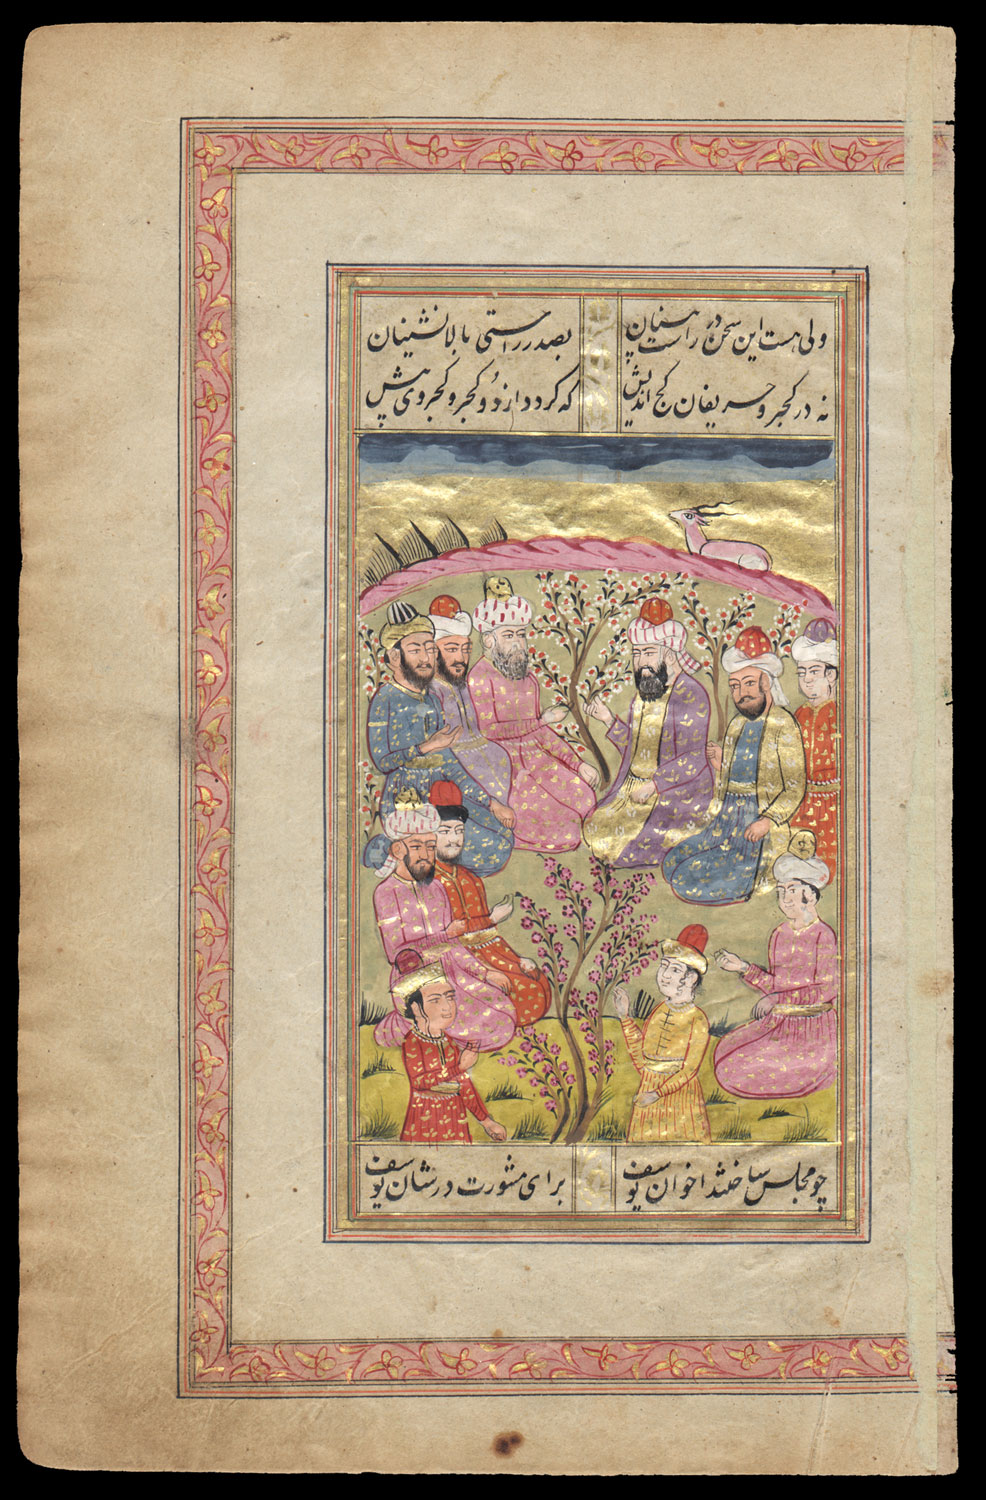 ولی هست این سخن در راست بینان بصدر راستی بالا نشینان
نه در کجرو حریفان کج اندیش که کردد از دو کجرو کجروی بیش
چو مجلس ساختند اخوان یوسف برای مشورت در شان یوسف